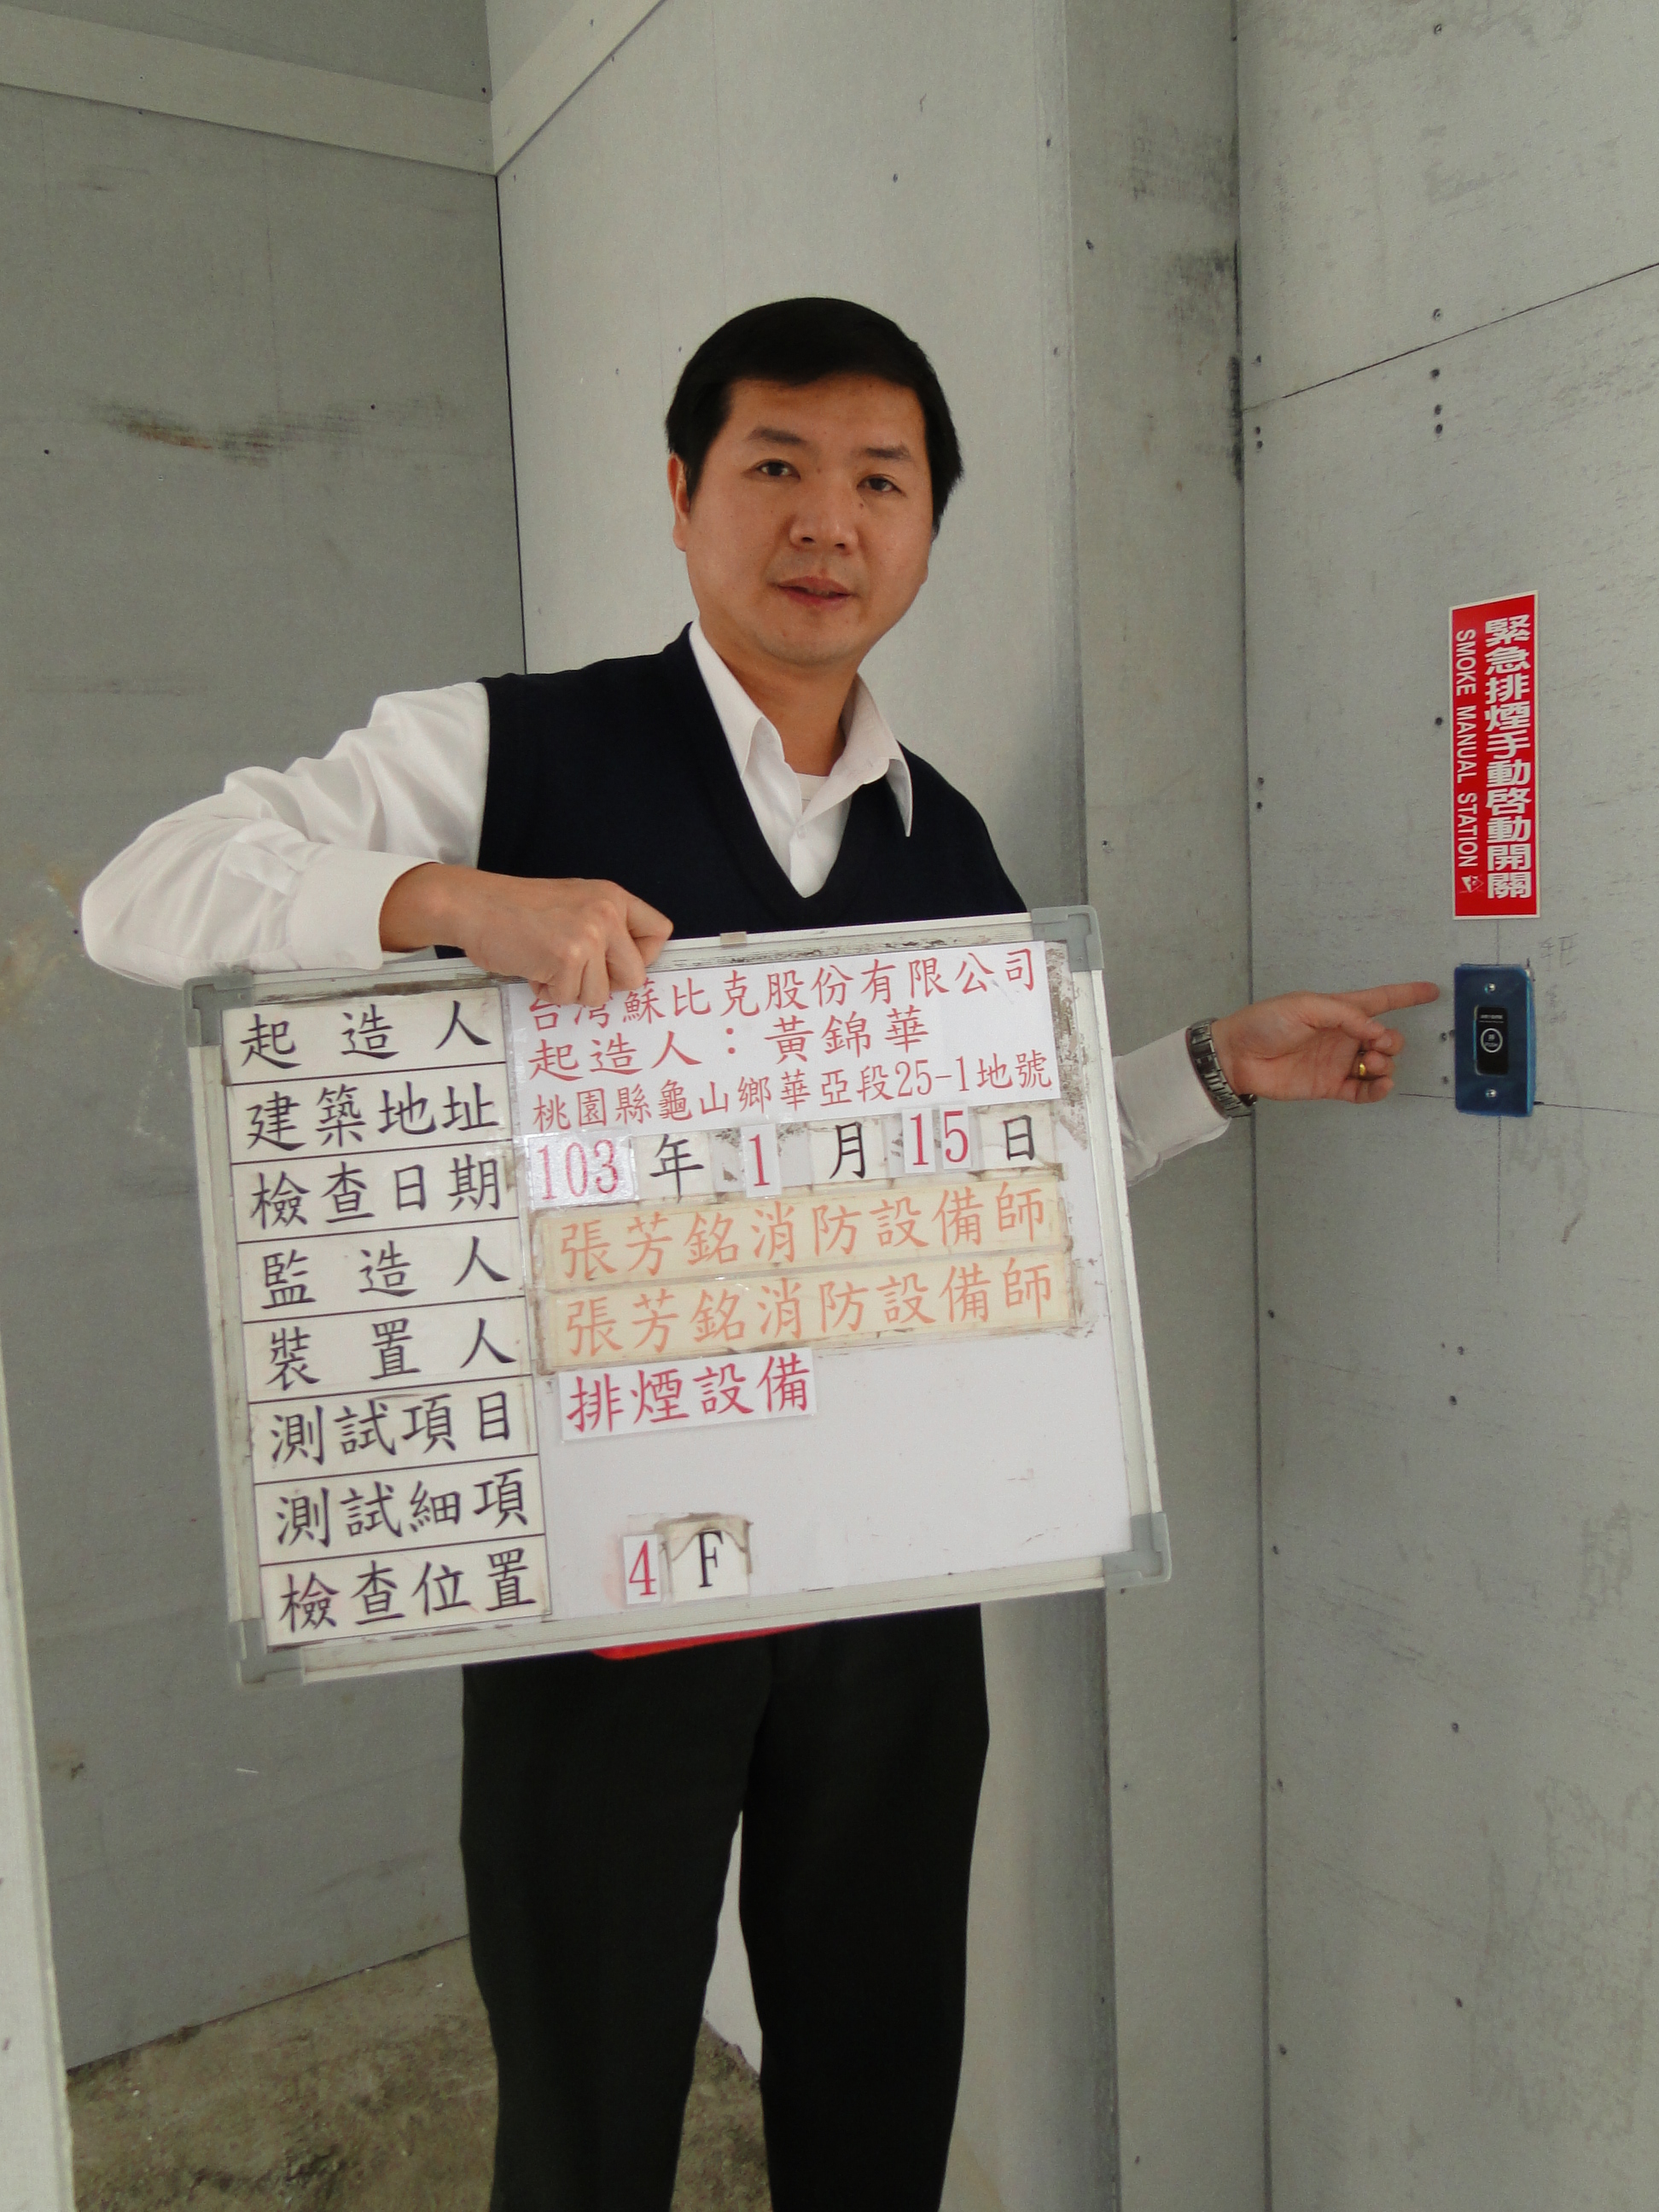 起造人 台灣蘇比克股份有限公司
起造人：黃錦華
建築地址 桃園縣龜山鄉華亞段25-1地號
檢查日期 103年1月15日
監造人 張芳銘消防設備師
裝置人 張芳銘消防設備師
測試項目 排煙設備
測試細項
檢查位置 4F
緊急排煙手動啓動開關
SMOKE MANUAL STATION